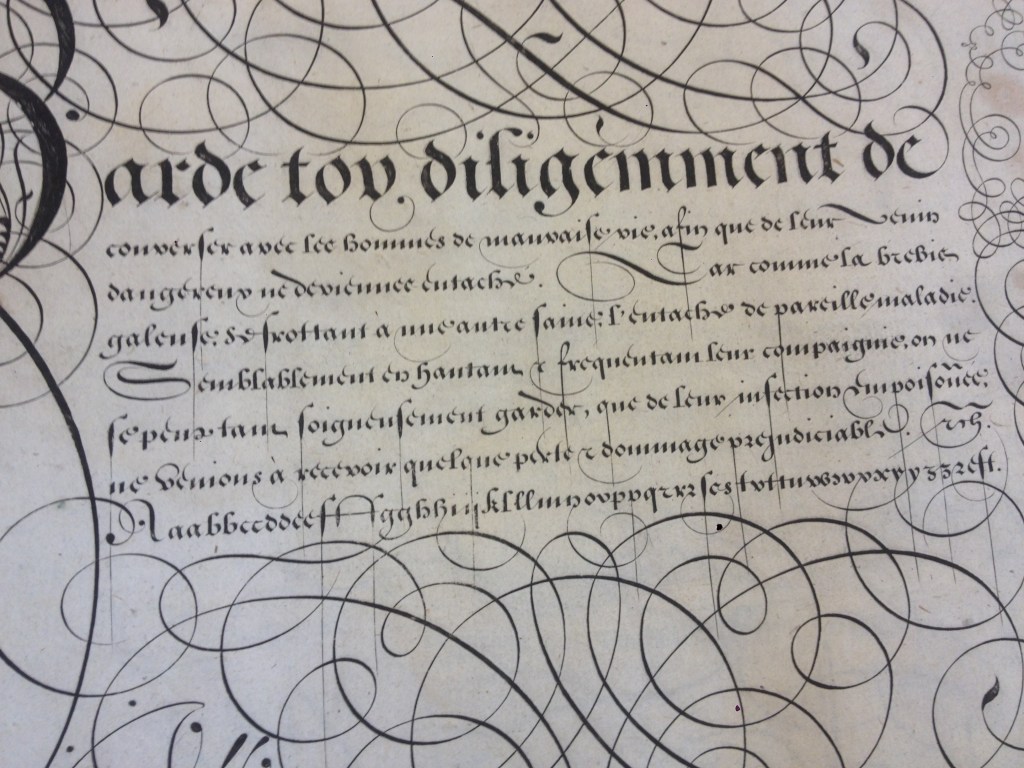 Garde toy diligemment de
converser avec les hommes de mauvaise vie, afin que de leur Venin
dangereux ne deviennes entaché. Car comme la brebis
galeuse: se frottant à une autre saine: l'entache de pareille maladie.
Semblablement en hantant & frequentant leur compaignie, on ne
se peut tant soigneusement garder, que de leur infection empoisonnee:
ne venions à recevoir quelque perte & dommage prejudiciable. &c.
Aaabbccddeeffgghhiijklllmnoppqrrsstvttuvwxyyzz&est.